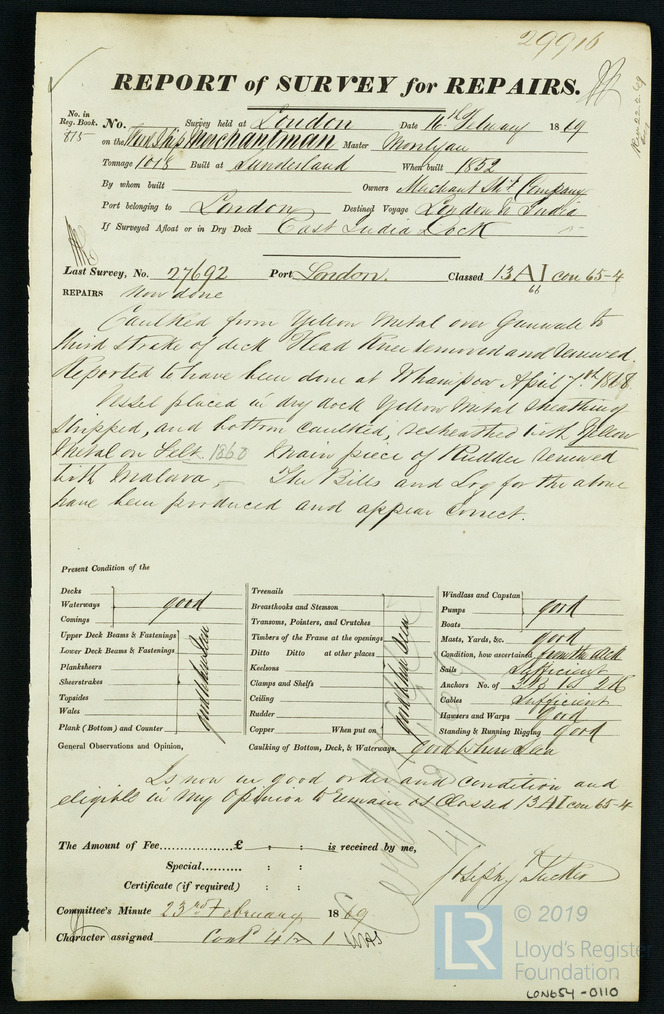 29916
REPORT of SURVEY for REPAIRS.
No. in
Reg. Book.
875
No. Survey held at London Date 16th February 1869
on the Ship Merchantman Master
Tonnage 1018 Built at Sunderland When built 1852
By whom built Owners Merchant Sht Company
Port belonging to London Destined Voyage London to India
If Surveyed Afloat or in Dry Dock East India Dock
Last Survey, No. 27692 Port London. Classed 13 A I con 65-4
66
REPAIRS Now done
Caulked from Yellow Metal over Gunwale to
third Strake of deck Head Knee removed and renewed.
Reported to have been done at Whampoa April 7th 1868.
Vessel placed in dry dock Yellow Metal Sheathing
stripped, and bottom caulked, resheathed with Yellow
Metal on Felt. 1868 Main piece of Rudder renewed
with Malava, The Bills and Log for the above
have been produced and appear correct.
Present Condition of the
Decks
Waterways good
Comings
Upper Deck Beams & Fastenings
Lower Deck Beams & Fastenings
Planksheers
Sheerstrakes
Topsides
Wales
Plank (Bottom) and Counter
good when seen
Treenails
Breasthooks and Stemson
Transoms, Pointers, and Crutches
Timbers of the Frame at the openings
Ditto Ditto at other places
Keelsons
Clamps and Shelfs
Ceiling
Rudder
Copper When put on
good when seen
Windlass and Capstan
Pumps good
Boats
Masts, Yards, &c. good
Condition, how ascertained from the deck
Sails Sufficient
Anchors No. of 3 B 1 S 2 K
Cables Sufficient
Hawsers and Warps Good
Standing & Running Rigging good
General Observations and Opinion, Caulking of Bottom, Deck, & Waterways. good when seen
Is now in good order and condition and
eligible in my Opinion to remain as Classed 13 A I con 65-4
The Amount of Fee £ : : is received by me,
Special : :
Certificate (if required) : :
Joseph Tucker
Committee's Minute 23rd February 1869
Character assigned Cont 4
© 2019
LR
Lloyd's Register
Foundation
LON654-0110